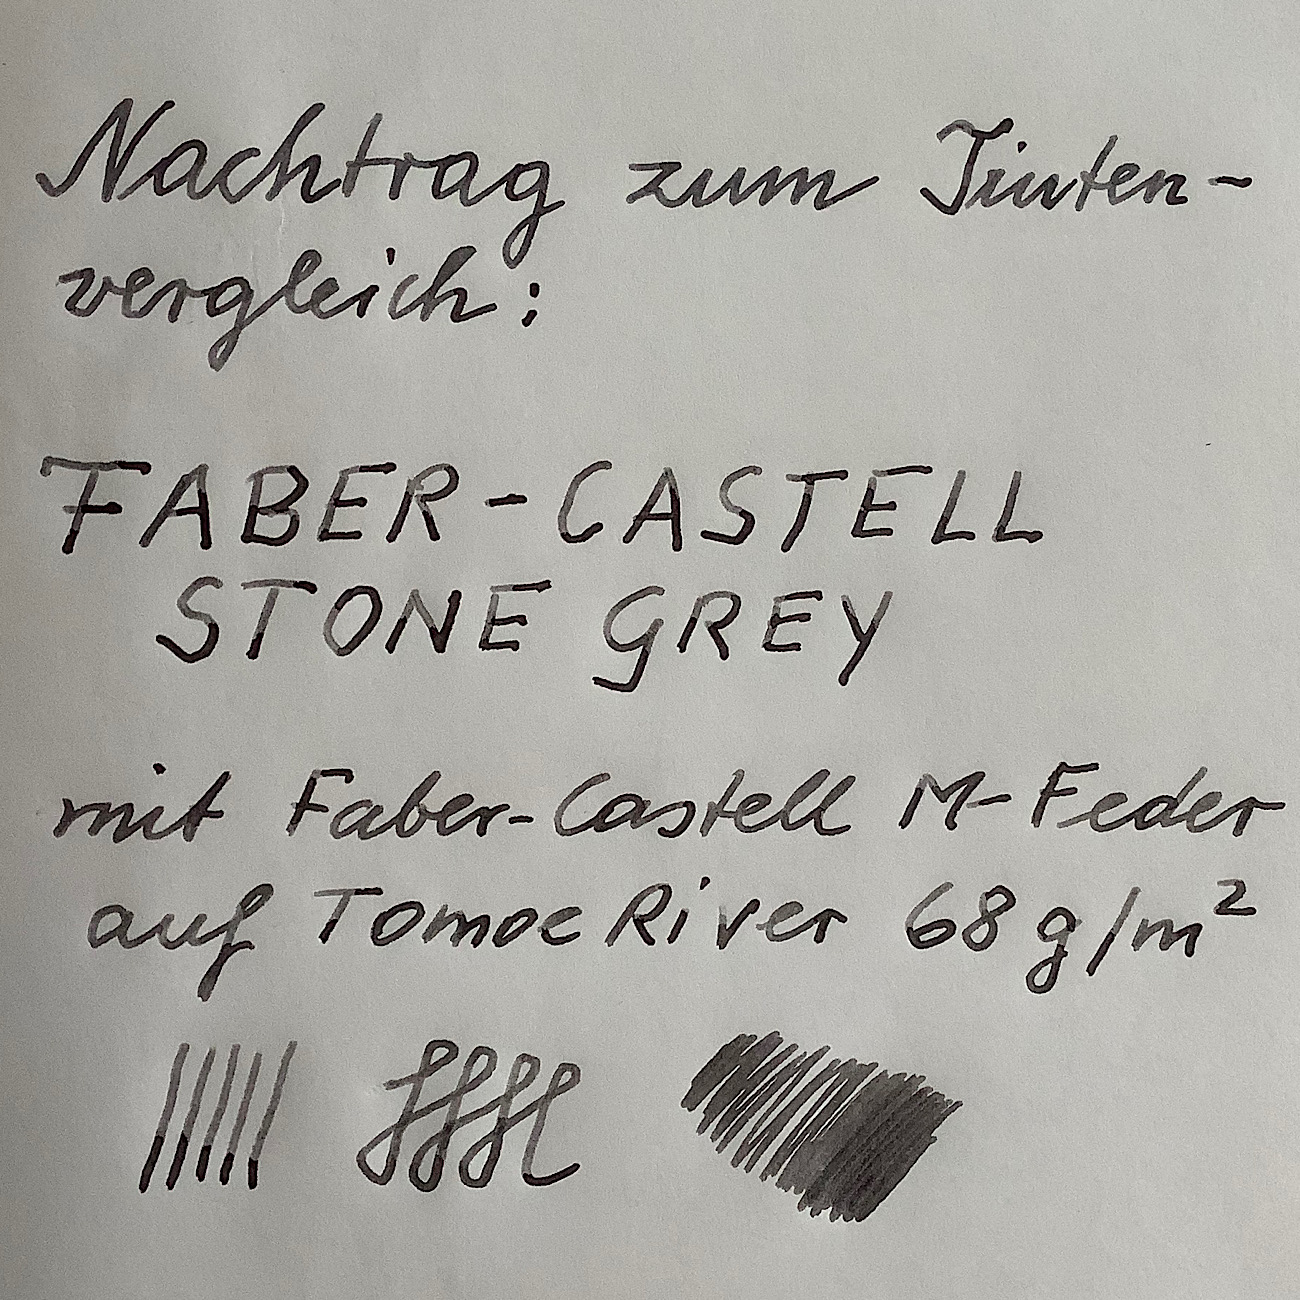 Nachtrag zum Tinten-
vergleich:
FABER-CASTELL
STONE GREY
mit Faber-Castell M-Feder
auf Tomoe River 68 g/m²